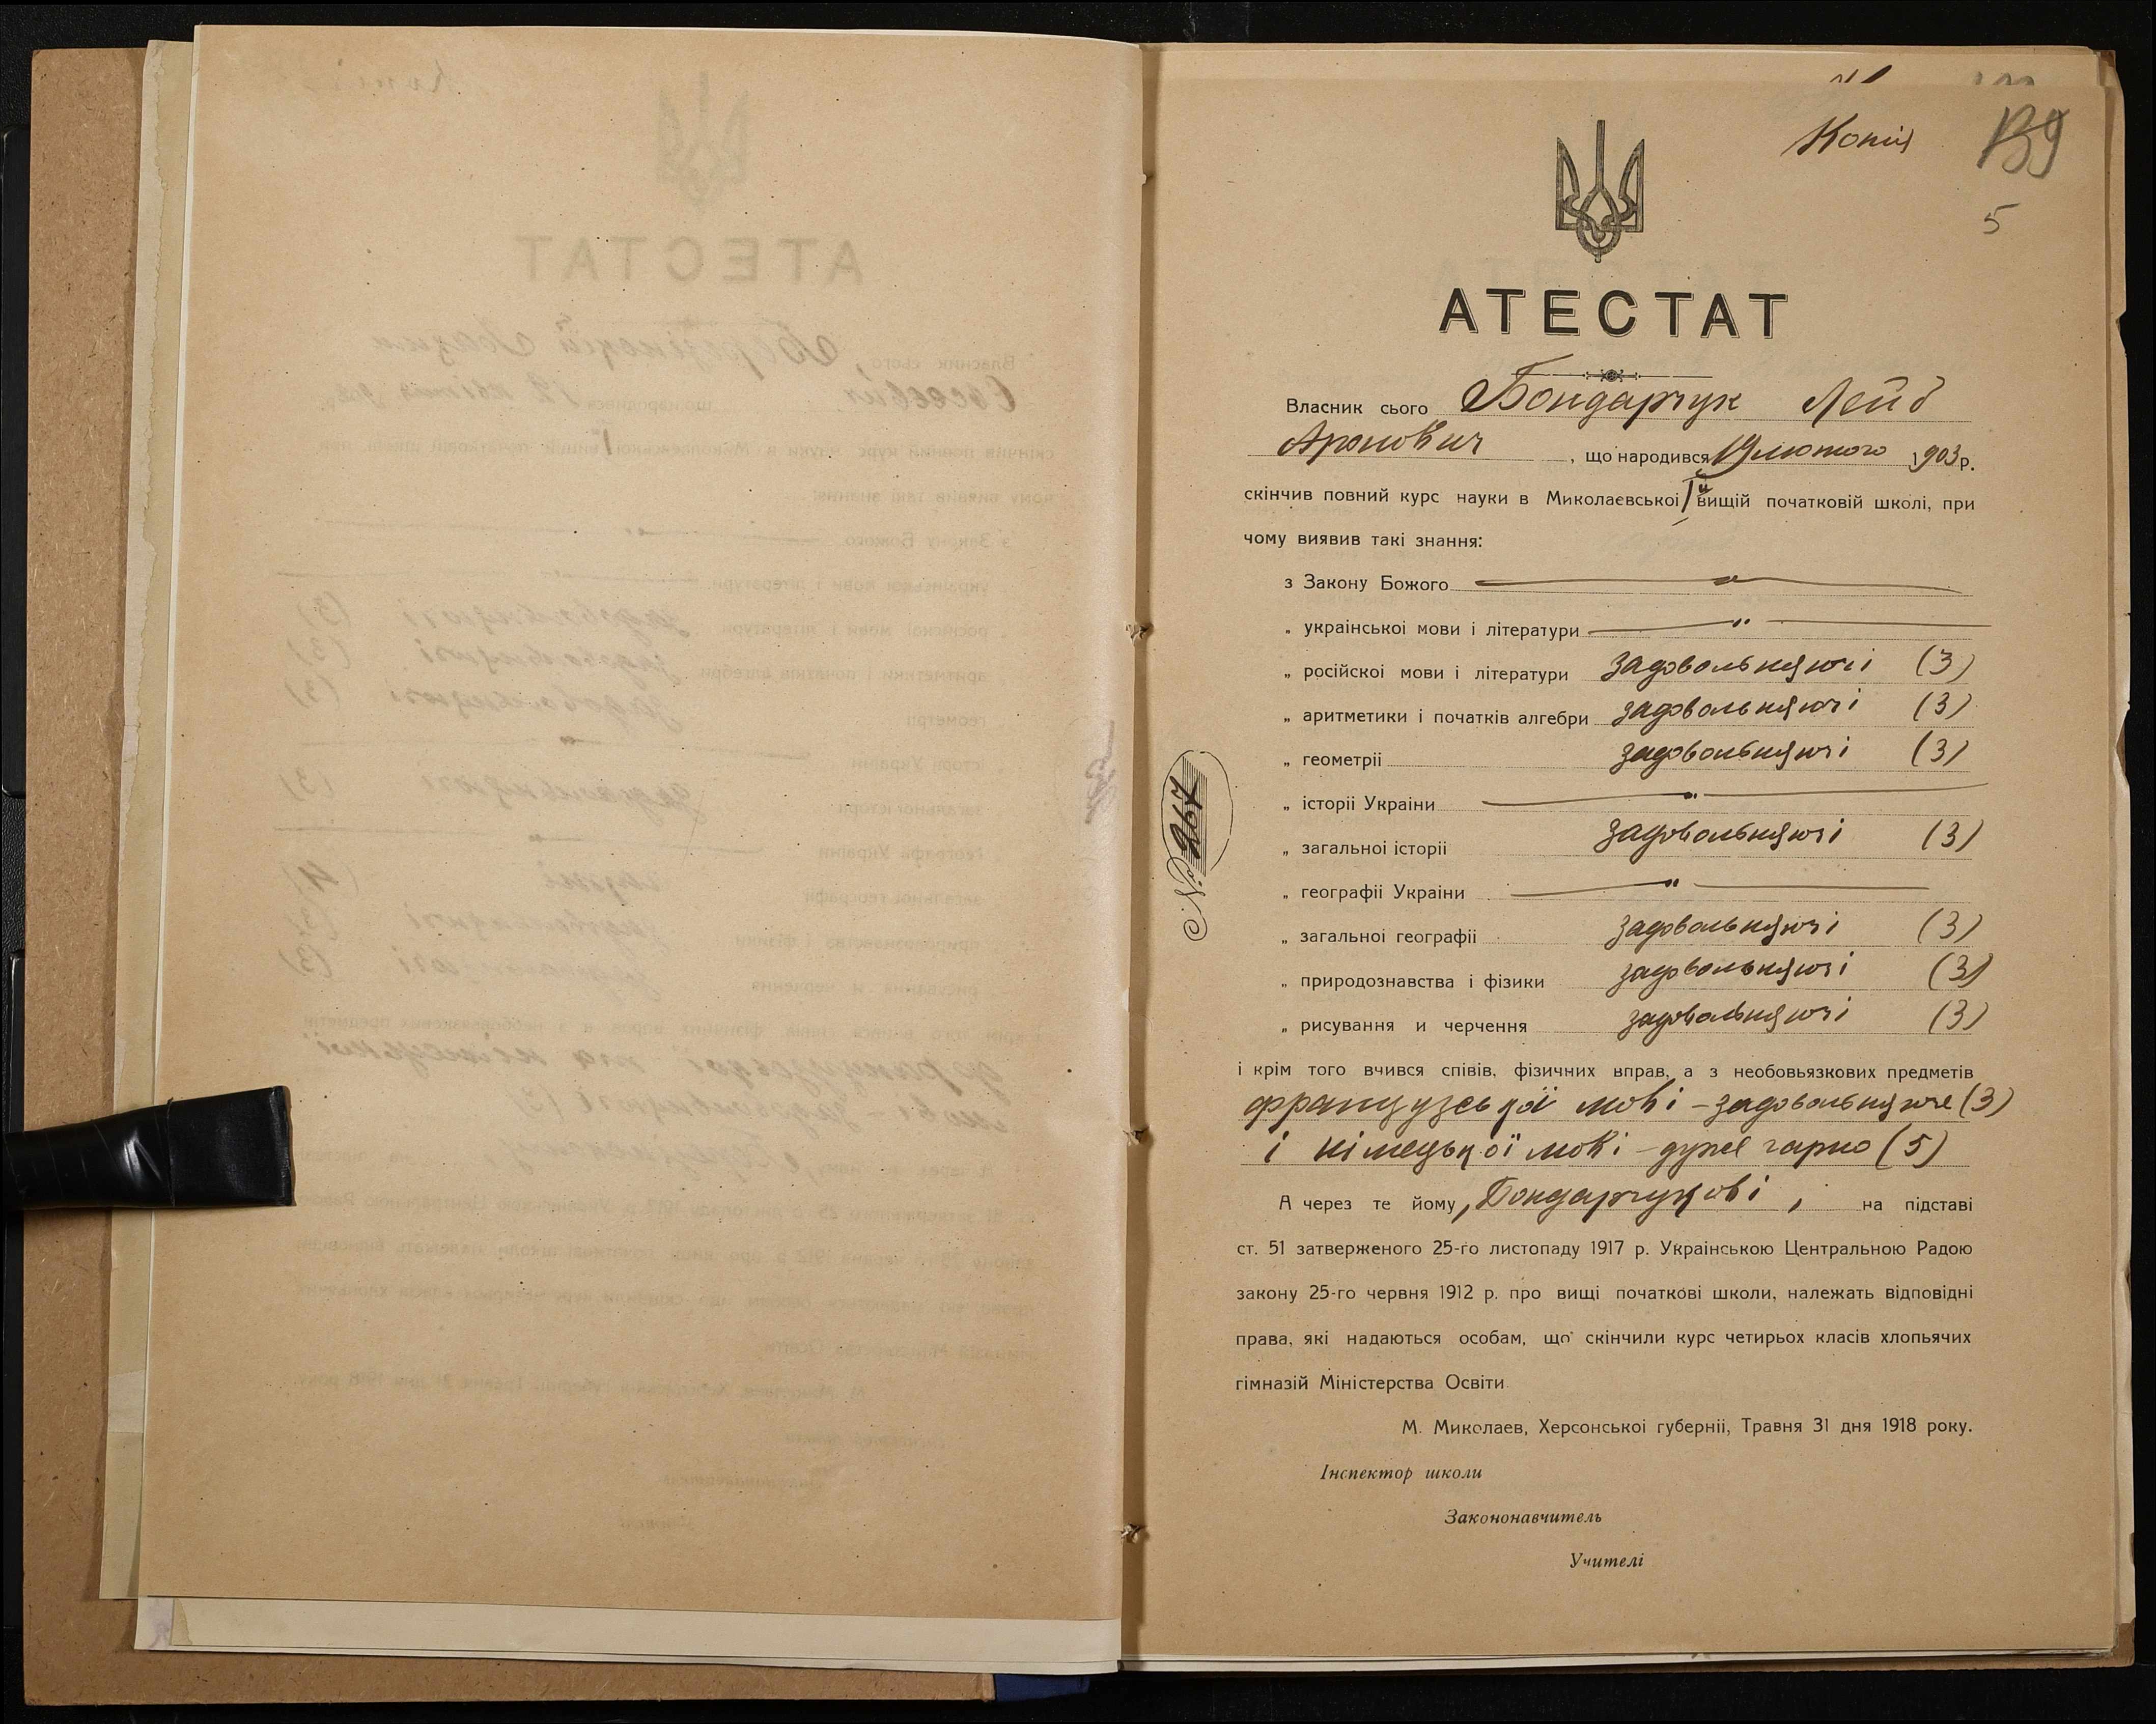 Копія
5
АТЕСТАТ
Власник сього Бондарчук Лейб
Аронович, що народився 19 лютого 1903 р.
скінчив повний курс науки в Миколаевськоі І й вищій початковій школі, при
чому виявив такі знання:
з Закону Божого — „ —
„ украінськоі мови і літератури — „ —
„ російскоі мови і літератури задовольняючі (3)
„ аритметики і початків алгебри задовольняючі (3)
„ геометріі задовольняючі (3)
„ історіі Украіни — „ —
„ загальноі історіі задовольняючі (3)
„ географіі Украіни — „ —
„ загальноі географіі задовольняючі (3)
„ природознавства і фізики задовольняючі (3)
„ рисування и черчення задовольняючі (3)
і крім того вчився співів, фізичних вправ, а з необовьязкових предметів
французської мові - задовольняюче (3)
і німецької мові - дуже гарно (5)
А через те йому, Бондарчукові, на підставі
ст. 51 затверженого 25-го листопаду 1917 р. Украінською Центральною Радою
закону 25-го червня 1912 р. про вищі початкові школи, належать відповідні
права, які надаються особам, що скінчили курс четирьох класів хлопьячих
гімназій Міністерства Освіти.
М. Миколаев, Херсонськоі губерніі, Травня 31 дня 1918 року.
Інспектор школи
Закононавчитель
Учителі